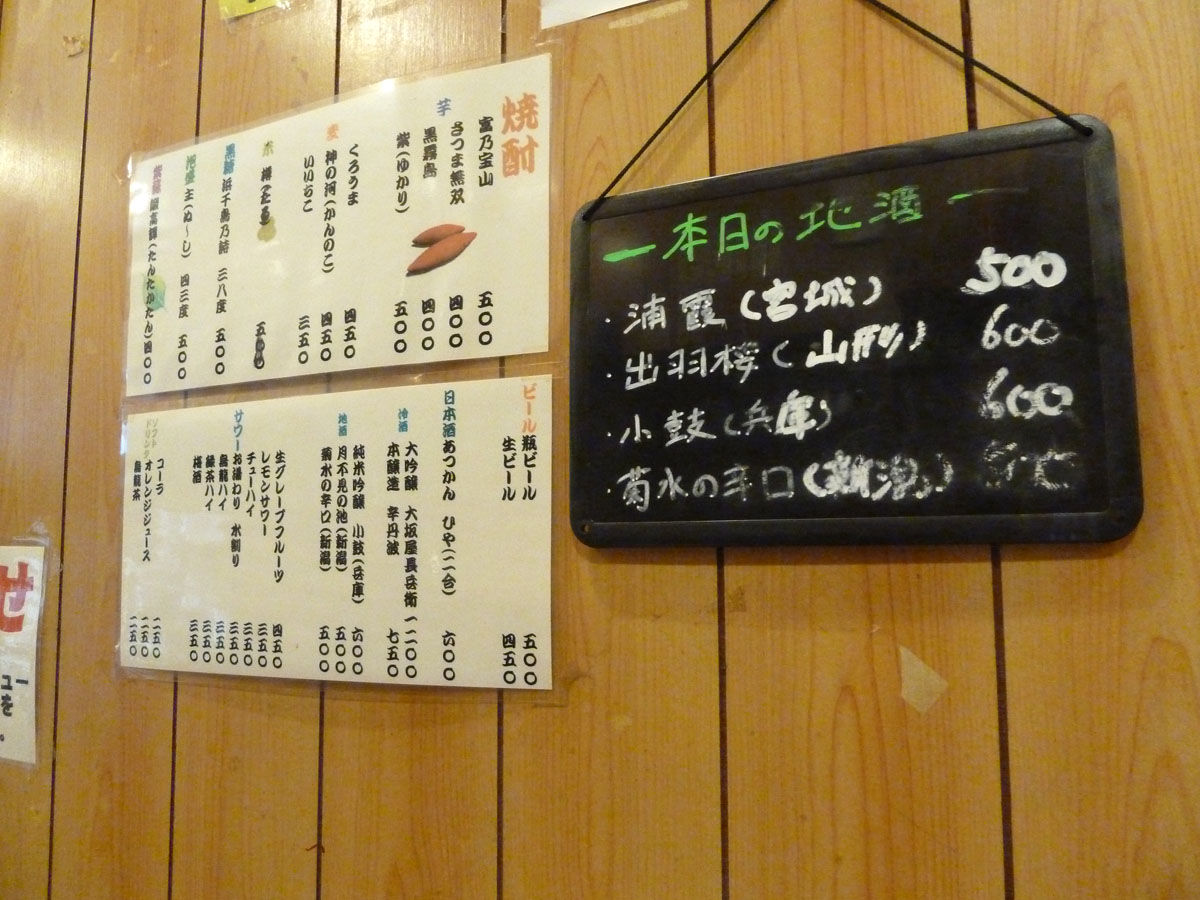 焼酎
富乃宝山 五〇〇
芋
さつま無双 四〇〇
黒霧島 四〇〇
紫(ゆかり) 五〇〇
麦
くろうま 四五〇
神の河(かんのこ) 四五〇
いいちこ 三五〇
米
黒糖 浜千鳥乃詩 三八度 五〇〇
泡盛 主(ぬ〜し) 四三度 五〇〇
紫蘇 鍛高譚(たんたかたん) 四〇〇
ビール 瓶ビール 五〇〇
生ビール 四五〇
日本酒 あつかん ひや(二合) 六〇〇
冷酒 大吟醸 大坂屋長兵衛 一二〇〇
本醸造 辛丹波 七五〇
地酒 純米吟醸 小鼓(兵庫) 六〇〇
月不見の池(新潟) 五〇〇
菊水の辛口(新潟) 五〇〇
生グレープフルーツ 四五〇
レモンサワー 三五〇
チューハイ 三五〇
サワー お湯わり 水割り 三五〇
烏龍ハイ 三五〇
緑茶ハイ 三五〇
梅酒 三五〇
ソフトドリンク
コーラ 二五〇
オレンジジュース 二五〇
烏龍茶 二五〇
ー本日の地酒ー
・浦霞(宮城) 500
・出羽桜(山形) 600
・小鼓(兵庫) 600
・菊水の辛口(新潟)
せ
ューを